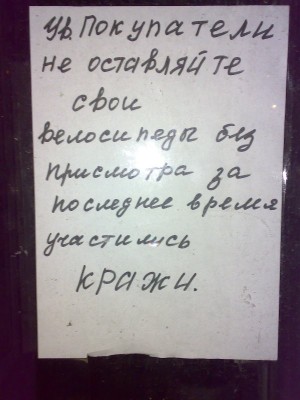 Ув. Покупатели
не оставляйте
свои
велосипеды без
присмотра за
последнее время
участились
кражи.